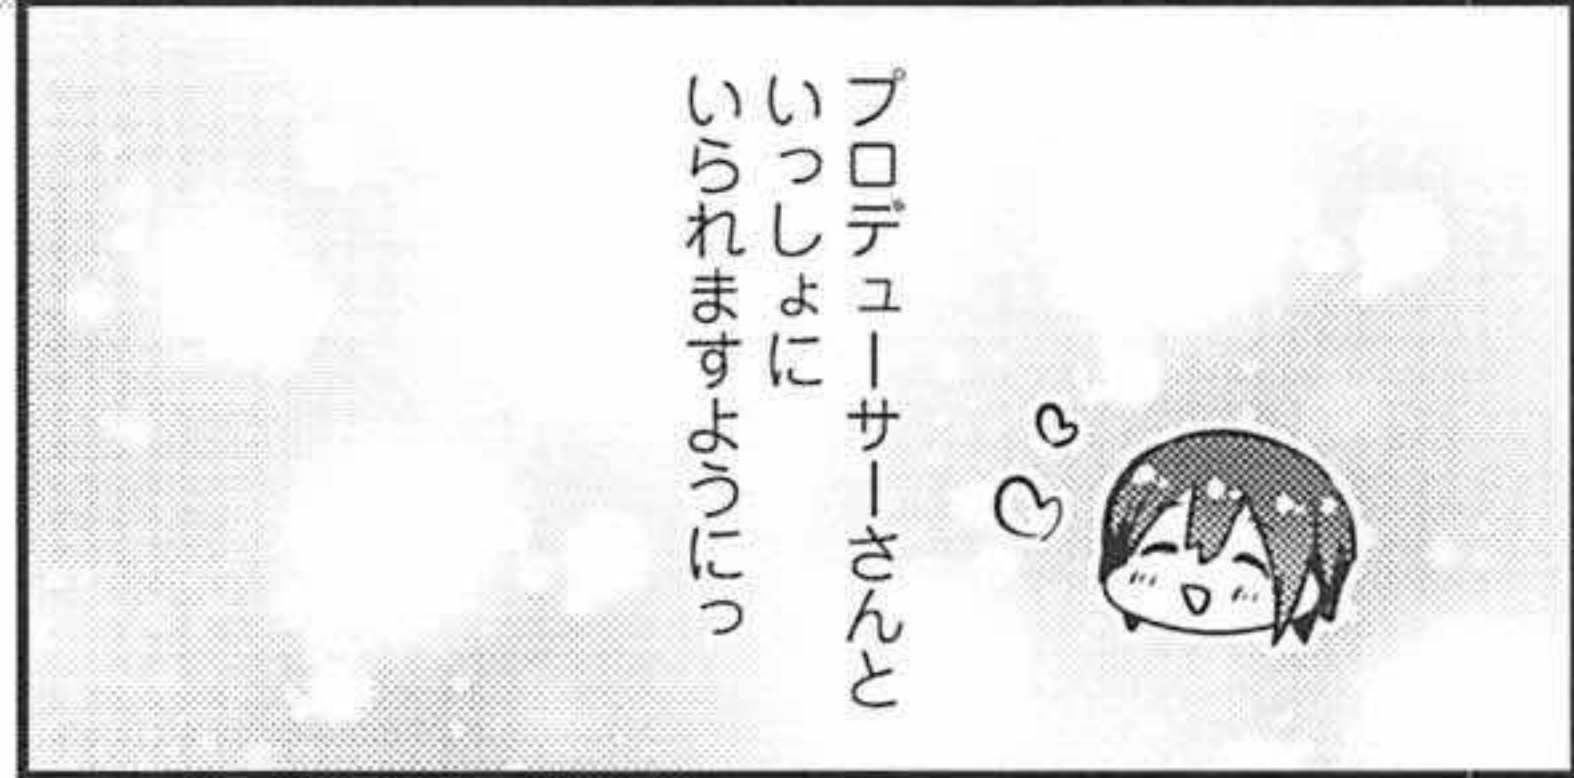 プロデューサーさんと
いっしょに
いられますようにっ